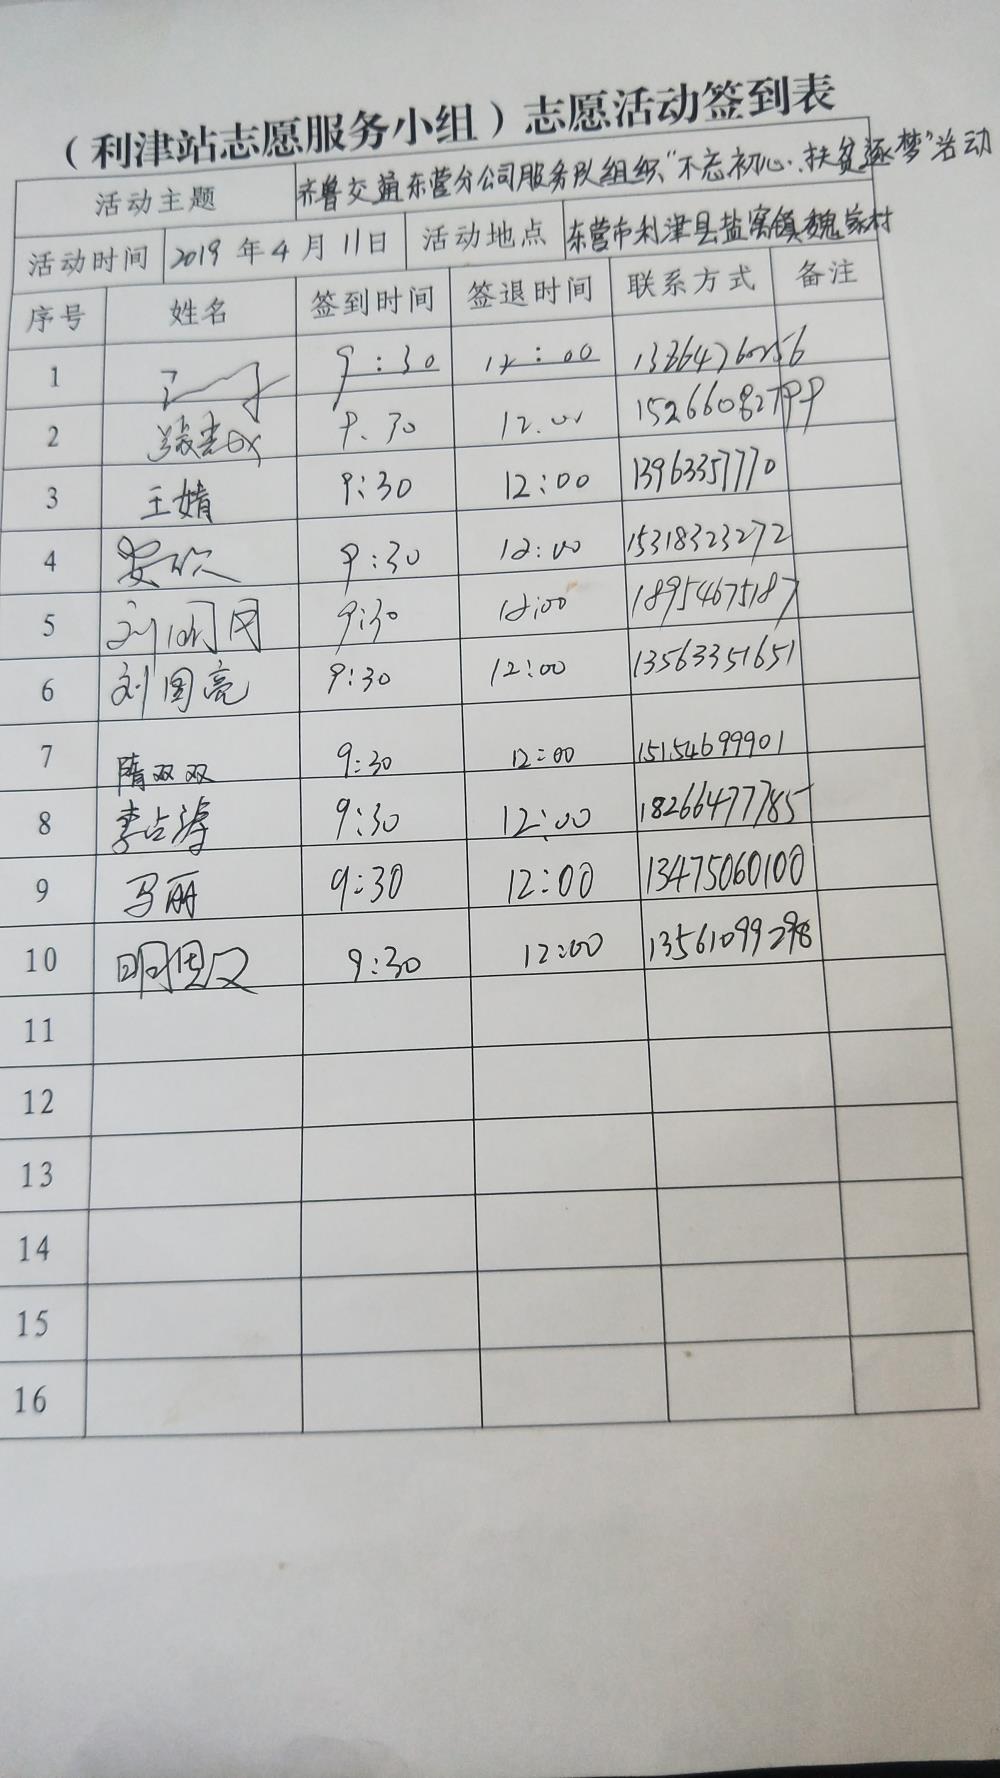 （利津站志愿服务小组）志愿活动签到表
活动主题 齐鲁交通东营分公司服务队组织“不忘初心·扶贫逐梦”活动
活动时间 2019年4月11日 活动地点 东营市利津县盐窝镇魏家村
序号 姓名 签到时间 签退时间 联系方式 备注
1 9:30 12:00
2 9.30 12.00
3 王婧 9:30 12:00 13963357770
4 安欣 9:30 12:00 15318323272
5 9:30 12:00 18954675187
6 刘国亮 9:30 12:00 13563351651
7 隋双双 9:30 12:00 15154699901
8 李占涛 9:30 12:00 18266477785
9 马丽 9:30 12:00 13475060100
10 9:30 12:00 13561099298
11
12
13
14
15
16